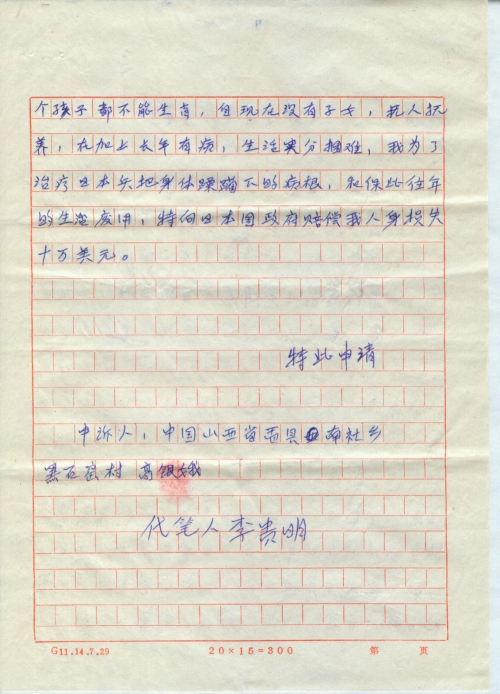 个孩子都不能生育，自现在没有子女，抚人抚
养，在加上长年有病，生活实分捆难，我为了
治疗日本兵把身体蹂蹦下的病根，和保此往年
的生活废用，特向日本国政府赔偿我人身损失
十万美元。
特此申请
申诉人，中国山西省盂县 南社乡
黑石窑村 高银娥
代笔人李贵明
G11.14.7.29 20×15=300 第 页